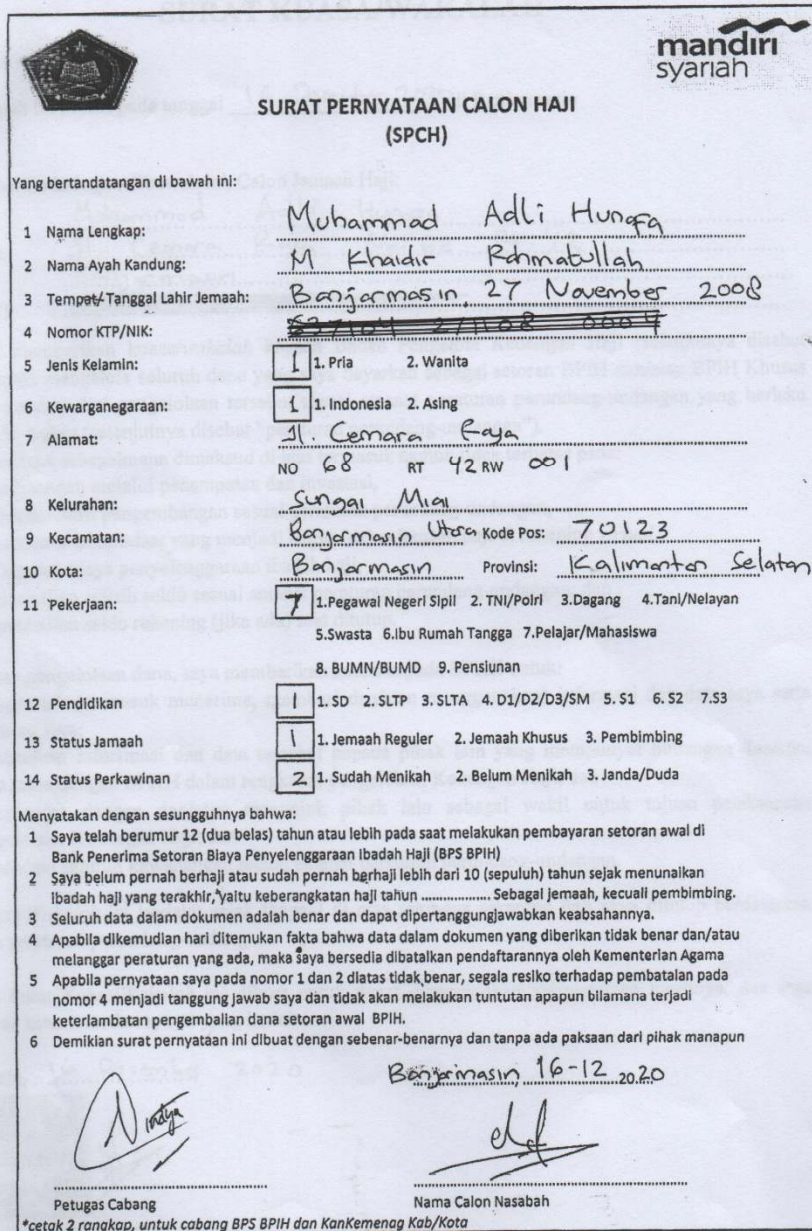 mandiri
syariah
SURAT PERNYATAAN CALON HAJI
(SPCH)
Yang bertandatangan di bawah ini:
1 Nama Lengkap: Muhammad Adli Hunafa
2 Nama Ayah Kandung: M Khaidir Rahmatullah
3 Tempat/ Tanggal Lahir Jemaah: Banjarmasin, 27 November 2008
4 Nomor KTP/NIK:
5 Jenis Kelamin: 1 1. Pria 2. Wanita
6 Kewarganegaraan: 1 1. Indonesia 2. Asing
7 Alamat: Jl. Cemara Raya
NO 68 RT 42 RW 001
8 Kelurahan: Sungai Miai
9 Kecamatan: Banjarmasin Utara Kode Pos: 70123
10 Kota: Banjarmasin Provinsi: Kalimantan Selatan
11 Pekerjaan: 7 1.Pegawai Negeri Sipil 2. TNI/Polri 3.Dagang 4.Tani/Nelayan
5.Swasta 6.Ibu Rumah Tangga 7.Pelajar/Mahasiswa
8. BUMN/BUMD 9. Pensiunan
12 Pendidikan 1. SD 2. SLTP 3. SLTA 4. D1/D2/D3/SM 5. S1 6. S2 7.S3
13 Status Jamaah 1 1. Jemaah Reguler 2. Jemaah Khusus 3. Pembimbing
14 Status Perkawinan 2 1. Sudah Menikah 2. Belum Menikah 3. Janda/Duda
Menyatakan dengan sesungguhnya bahwa:
1 Saya telah berumur 12 (dua belas) tahun atau lebih pada saat melakukan pembayaran setoran awal di
Bank Penerima Setoran Biaya Penyelenggaraan Ibadah Haji (BPS BPIH)
2 Saya belum pernah berhaji atau sudah pernah berhaji lebih dari 10 (sepuluh) tahun sejak menunaikan
ibadah haji yang terakhir, yaitu keberangkatan haji tahun ............ Sebagai jemaah, kecuali pembimbing.
3 Seluruh data dalam dokumen adalah benar dan dapat dipertanggungjawabkan keabsahannya.
4 Apabila dikemudian hari ditemukan fakta bahwa data dalam dokumen yang diberikan tidak benar dan/atau
melanggar peraturan yang ada, maka saya bersedia dibatalkan pendaftarannya oleh Kementerian Agama
5 Apabila pernyataan saya pada nomor 1 dan 2 diatas tidak benar, segala resiko terhadap pembatalan pada
nomor 4 menjadi tanggung jawab saya dan tidak akan melakukan tuntutan apapun bilamana terjadi
keterlambatan pengembalian dana setoran awal BPIH.
6 Demikian surat pernyataan ini dibuat dengan sebenar-benarnya dan tanpa ada paksaan dari pihak manapun
Banjarmasin, 16-12 2020
Nindya
Petugas Cabang Nama Calon Nasabah
*cetak 2 rangkap, untuk cabang BPS BPIH dan KanKemenag Kab/Kota